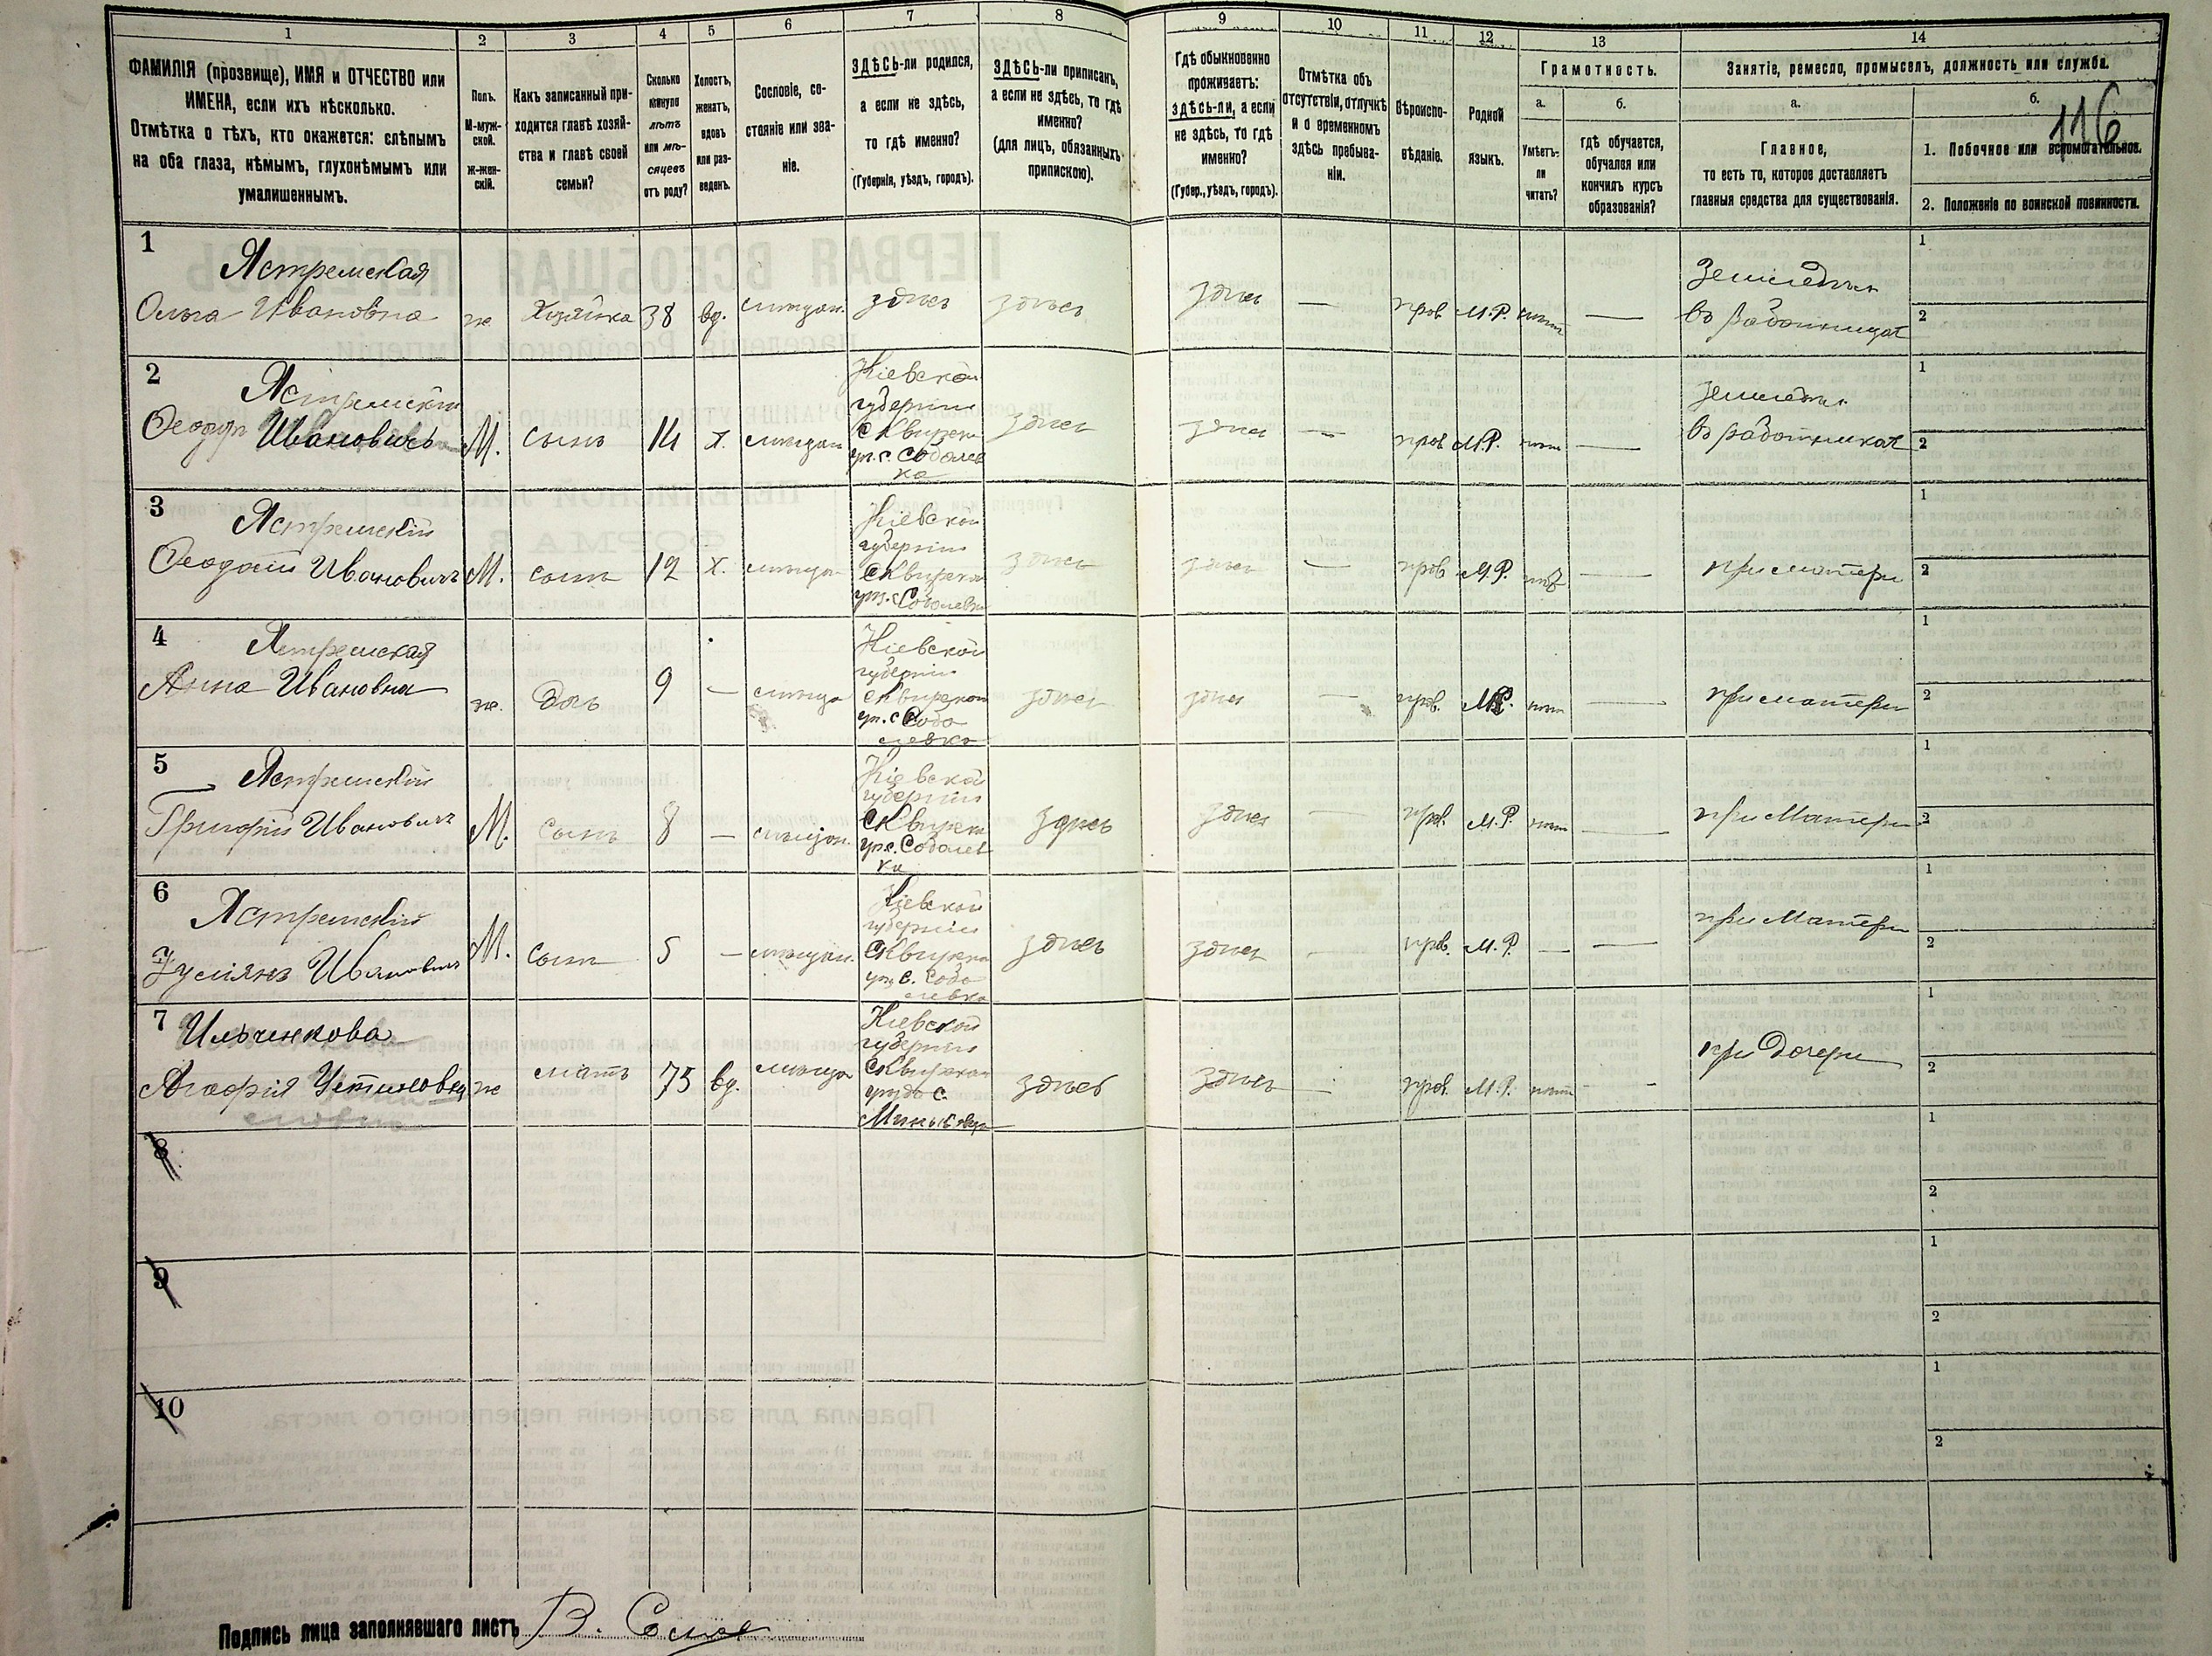 1 2 3 4 5 6 7 8 9 10 11 12 13 14
ФАМИЛІЯ (прозвище), ИМЯ и ОТЧЕСТВО или
ИМЕНА, если ихъ нѣсколько.
Отмѣтка о тѣхъ, кто окажется: слѣпымъ
на оба глаза, нѣмымъ, глухонѣмымъ или
умалишеннымъ.
Полъ.
М-муж-
ской.
ж-жен-
скій.
Какъ записанный при-
ходится главѣ хозяй-
ства и главѣ своей
семьи?
Сколько
минуло
лѣтъ
или мѣ-
сяцевъ
отъ роду?
Холостъ,
женатъ,
вдовъ
или раз-
веденъ.
Сословіе, со-
стояніе или зва-
ніе.
ЗДѢСЬ-ли родился,
а если не здѣсь,
то гдѣ именно?
(Губернія, уѣздъ, городъ).
ЗДѢСЬ-ли приписанъ,
а если не здѣсь, то гдѣ
именно?
(для лицъ, обязанныхъ
припискою).
Гдѣ обыкновенно
проживаетъ:
ЗДѢСЬ-ли, а если
не здѣсь, то гдѣ
именно?
(Губер., уѣздъ, городъ).
Отмѣтка объ
отсутствіи, отлучкѣ
и о временномъ
здѣсь пребыва-
ніи.
Вѣроиспо-
вѣданіе.
Родной
языкъ.
Грамотность.
а.
Умѣетъ-
ли
читать?
б.
гдѣ обучается,
обучался или
кончилъ курсъ
образованія?
Занятіе, ремесло, промыселъ, должность или служба.
а.
Главное,
то есть то, которое доставляетъ
главныя средства для существованія.
б.
116
1. Побочное или вспомогательное.
2. Положеніе по воинской повинности.
1
Ястремская
Ольга Ивановна ж Хозяйка 38 вд. мѣщан. здѣсь здѣсь здѣсь — прав. М.Р. нѣтъ —
Земледѣл.
въ работницах
1
2
2
Ястремскій
Феодоръ Ивановичъ М. сынъ 14 х. мѣщан
Кіевской
губерніи
Сквирск
уѣ. с. Соболев
ка
здѣсь здѣсь — прав М.Р. нѣтъ —
Земледѣл.
въ работниках
1
2
3
Ястремскій
Феодосій Ивановичъ М. сынъ 12 х. мѣщан
Кіевской
губерніи
Сквирск
уѣз. с. Соболевк
здѣсь здѣсь — прав М.Р. —
при матери
1
2
4
Ястремская
Анна Ивановна ж. дочь 9 — мѣщан
Кіевской
губерніи
Сквирской
уѣ. с Собо
левка
здѣсь здѣсь — прав. М.Р. нѣтъ —
при матери
1
2
5
Ястремскій
Григорій Ивановичъ М. сынъ 8 — мѣщан.
Кіевской
губерніи
Сквирск
уѣ. с. Соболев
ка
здѣсь здѣсь — прав. М.Р. нѣтъ —
при Матери
1
2
6
Ястремскій
Ивановичъ М. сынъ 5 — мѣщан.
Кіевской
губерніи
Сквирск
уѣз с. Собо
левка
здѣсь здѣсь — прав. М.Р. — —
при Матери
1
2
7
Ильченкова
Агафія Устиновна ж мать 75 вд. мѣщан
Кіевской
губерніи
Сквирской
уѣзда с.
здѣсь здѣсь — прав. М.Р. нѣтъ —
при дочери
1
2
8
1
2
9
1
2
10
1
2
Подпись лица заполнявшаго листъ В.